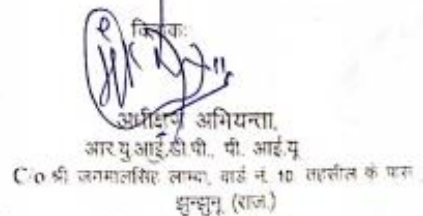 दिनांक:
अधीक्षण अभियन्ता,
आर.यु.आई.डी.पी., पी. आई.यू
C/o श्री जगमालसिंह लाम्बा, वार्ड नं. 10 तहसील के पास
झुन्झुनू (राज.)